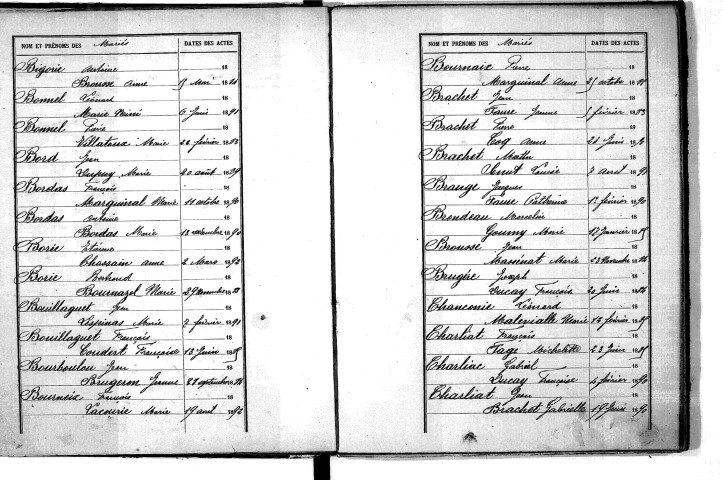 NOM ET PRÉNOMS DES Mariés DATES DES ACTES
18
Bigorie Antoine
Brousse Anne Mai 18
Bonnel Léonard 18
Marie 6 Juin 1891
Bonnel Pierre 18
Villatoux Marie février 18
Bord Jean 18
Dupuy Marie 20 août 1889
Bordas François
Marquinal Marie 11 octobre 1890
Bordas Antoine 18
Bordas Marie 1890
Borie Etienne 18
Chassain Anne 2 Mars 1892
Borie Bertrand 18
Bournazel Marie 29 18
Bouillaguet Jean 18
Lespinas Marie 7 février 1891
Bouillaguet François 18
Coudert Françoise 13 Juin 18
Bourboulou Jean 18
Brugeron Jeanne septembre 18
Bourneix François 18
Lacourie Marie 19 avril 1892
NOM ET PRÉNOMS DES Mariés DATES DES ACTES
Bournaix Pierre 18
Marquinal Anne 25 octobre 18
Brachet Jean 18
Faure Jeanne février 1883
Brachet Pierre 18
Coq Anne Juin 18
Brachet Martin 18
Louise 7 avril 18
Brange Jacques 18
Faure Catherine 12 février 1890
Brondeau Marcelin 18
Goumy Marie 19 Janvier 18
Brousse Jean 18
Massénat Marie 23 Novembre 18
Brugère Joseph 18
Ducay François 20 Juin 18
Chanconie Léonard 18
Malevialle Marie 14 février 18
Charliat François 18
Fage Michelette 23 Juin 18
Charliac Gabriel 18
Ducay Françoise 4 février 1890
Charliat Jean 18
Brachet Gabrielle 19 Juin 18